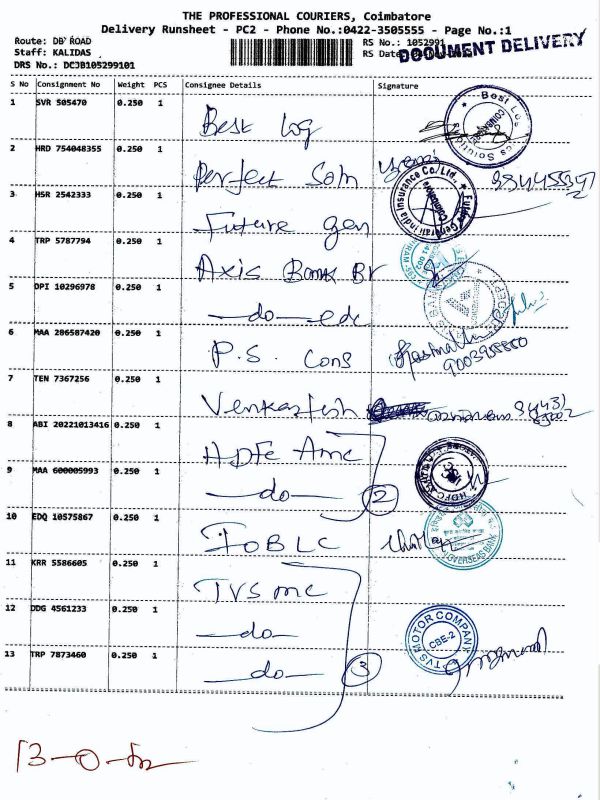 THE PROFESSIONAL COURIERS, Coimbatore
Delivery Runsheet - PC2 - Phone No.:0422-3505555 - Page No.:1
Route: DB ROAD
RS No.: 1052991
Staff: KALIDAS
RS Date
DOCUMENT DELIVERY
DRS No.: DCJB105299101
S No Consignment No Weight PCS Consignee Details Signature
1 SVR 505470 0.250 1 Best Log
2 HRD 754048355 0.250 1 Perfect Soln
3 HSR 2542333 0.250 1 Future gen
4 TRP 5787794 0.250 1 Axis Bank Br
5 OPI 10296978 0.250 1 —do— edc
6 MAA 286587420 0.250 1 P.S. Cons
7 TEN 7367256 0.250 1 Venkatesh
8 ABI 20221013416 0.250 1 HDFC Amc
9 MAA 600005993 0.250 1 —do— 2
10 EDQ 10575867 0.250 1 IOB LC
OVERSEAS BANK
11 KRR 5586605 0.250 1 TVS mc
12 DDG 4561233 0.250 1 —do—
TVS MOTOR COMPANY
CBE-2
13 TRP 7873460 0.250 1 —do— 3
Best Log
Future Generali India Insurance Co/Ltd.,
Coimbatore
9003955550
13-0-